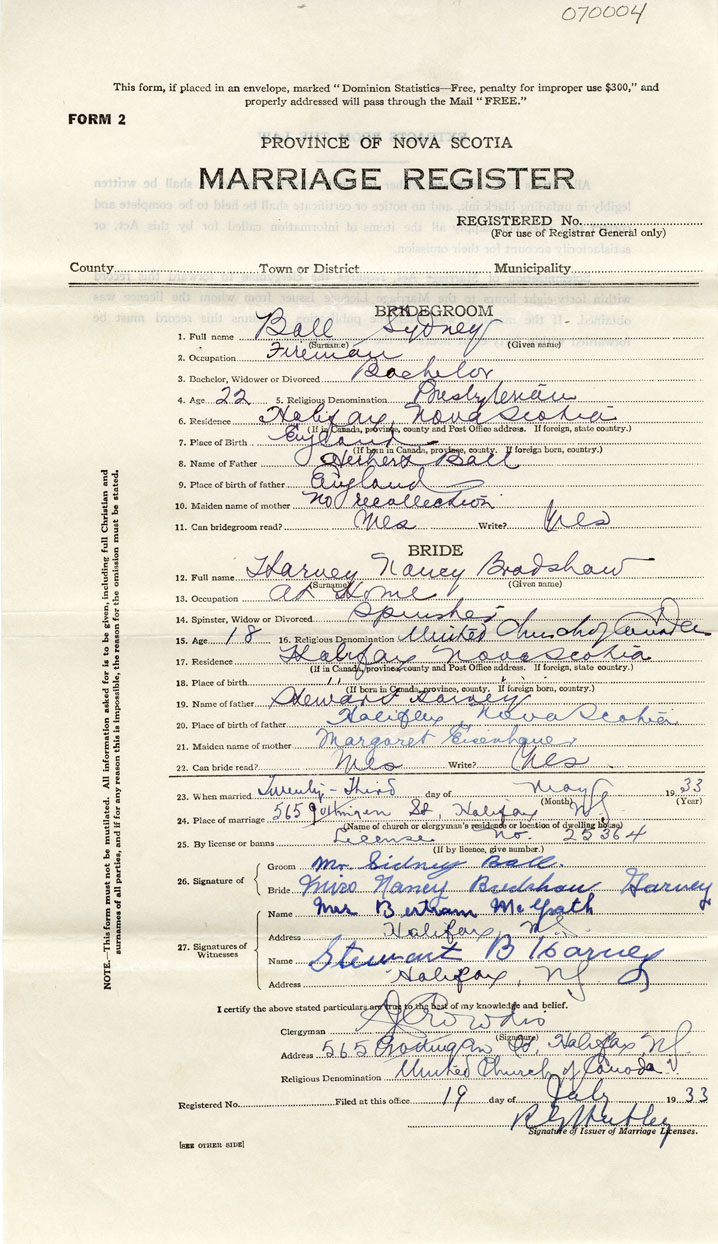 070004
This form, if placed in an envelope, marked "Dominion Statistics—Free, penalty for improper use $300," and
properly addressed will pass through the Mail "FREE."
FORM 2
PROVINCE OF NOVA SCOTIA
MARRIAGE REGISTER
REGISTERED No.
(For use of Registrar General only)
County Town or District Municipality
BRIDEGROOM
1. Full name Ball Sydney
(Surname) (Given name)
2. Occupation Fireman
3. Bachelor, Widower or Divorced Bachelor
4. Age 22 5. Religious Denomination Presbyterian
6. Residence Halifax, Nova Scotia
(If in Canada, province, county and Post Office address. If foreign, state country.)
7. Place of Birth England
(If born in Canada, province, county. If foreign born, country.)
8. Name of Father Herbert Ball
9. Place of birth of father England
10. Maiden name of mother No recollection
11. Can bridegroom read? Yes Write? Yes
BRIDE
12. Full name Harvey Nancy Bradshaw
(Surname) (Given name)
13. Occupation At Home
14. Spinster, Widow or Divorced Spinster
15. Age 18 16. Religious Denomination United Church of Canada
17. Residence Halifax Nova Scotia
(If in Canada, province, county and Post Office address. If foreign, state country.)
18. Place of birth " "
(If born in Canada, province, county. If foreign born, country.)
19. Name of father Harvey
20. Place of birth of father Halifax, Nova Scotia
21. Maiden name of mother Margaret Eisenhauer
22. Can bride read? Yes Write? Yes
23. When married Twenty-Third day of May 1933
(Month) (Year)
24. Place of marriage 565 St, Halifax NS
(Name of church or clergyman's residence or location of dwelling house)
25. By license or banns License No. 25364
(If by licence, give number.)
26. Signature of Groom Mr. Sidney Ball.
Bride Miss Nancy Bradshaw Harvey
27. Signatures of Witnesses
Name Mrs Bertram McGrath
Address Halifax, N.S.
Name Stewart B Harvey
Address Halifax, NS
I certify the above stated particulars are true to the best of my knowledge and belief.
Clergyman
(Signature)
Address 565 St, Halifax, NS.
Religious Denomination United Church of Canada
Registered No. Filed at this office 19 day of July 1933
Signature of Issuer of Marriage Licenses.
[SEE OTHER SIDE]
NOTE.—This form must not be mutilated. All information asked for is to be given, including full Christian and
surnames of all parties, and if for any reason this is impossible, the reason for the omission must be stated.